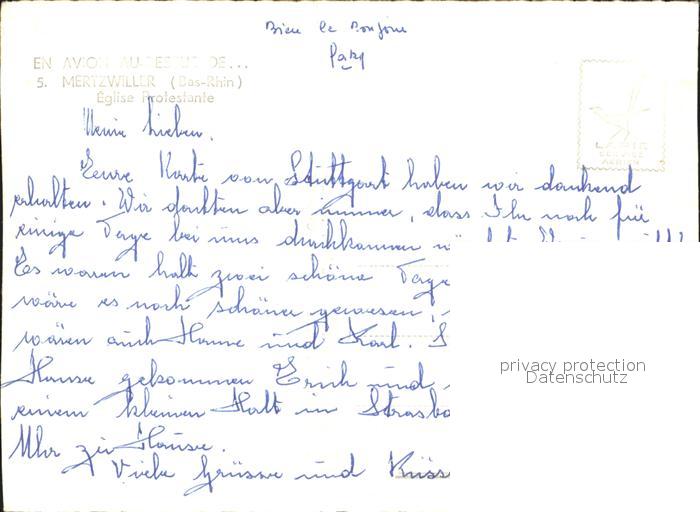 Bien le Bonjour
EN AVION AU-DESSUS DE...
5. MERTZWILLER (Bas-Rhin)
Église Protestante
LAPIE
SERVICE
AERIEN
Meine Lieben.
Eure Karte von Stuttgart haben wir dankend
erhalten. Wir dachten aber immer, dass Ihr noch für
einige Tage bei uns durchkommen
Es waren halt zwei schöne Tage
wäre es noch schöner gewesen,
wären auch Hanne und Karl.
Hause gekommen Erich und
einem kleinen Halt in Strasbo
Uhr zu Hause.
Viele Grüsse und Küss
privacy protection
Datenschutz